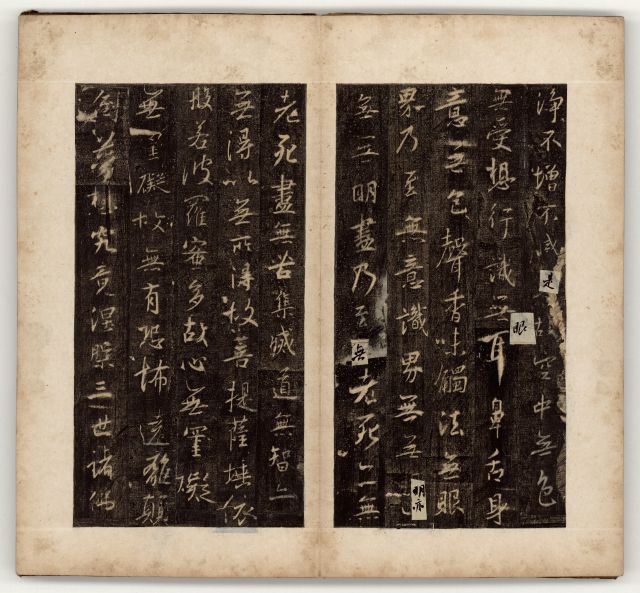 淨不增不減是故空中無色
無受想行識無眼耳鼻舌身
意無色聲香味觸法無眼
界乃至無意識界無無明亦
無無明盡乃至無老死亦無
老死盡無苦集滅道無智亦
無得以無所得故菩提薩埵依
般若波羅蜜多故心無罣礙
無罣礙故無有恐怖遠離顛
倒夢想究竟涅槃三世諸佛